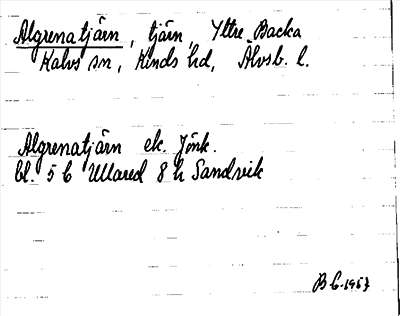 Algrenatjärn, tjärn, Yttre Backa
Kalvs sn, Kinds hd, Älvsb. l.
Algrenatjärn ek. Jönk.
bl. 5 C Ullared 8 h Sandvik
B C. 1957